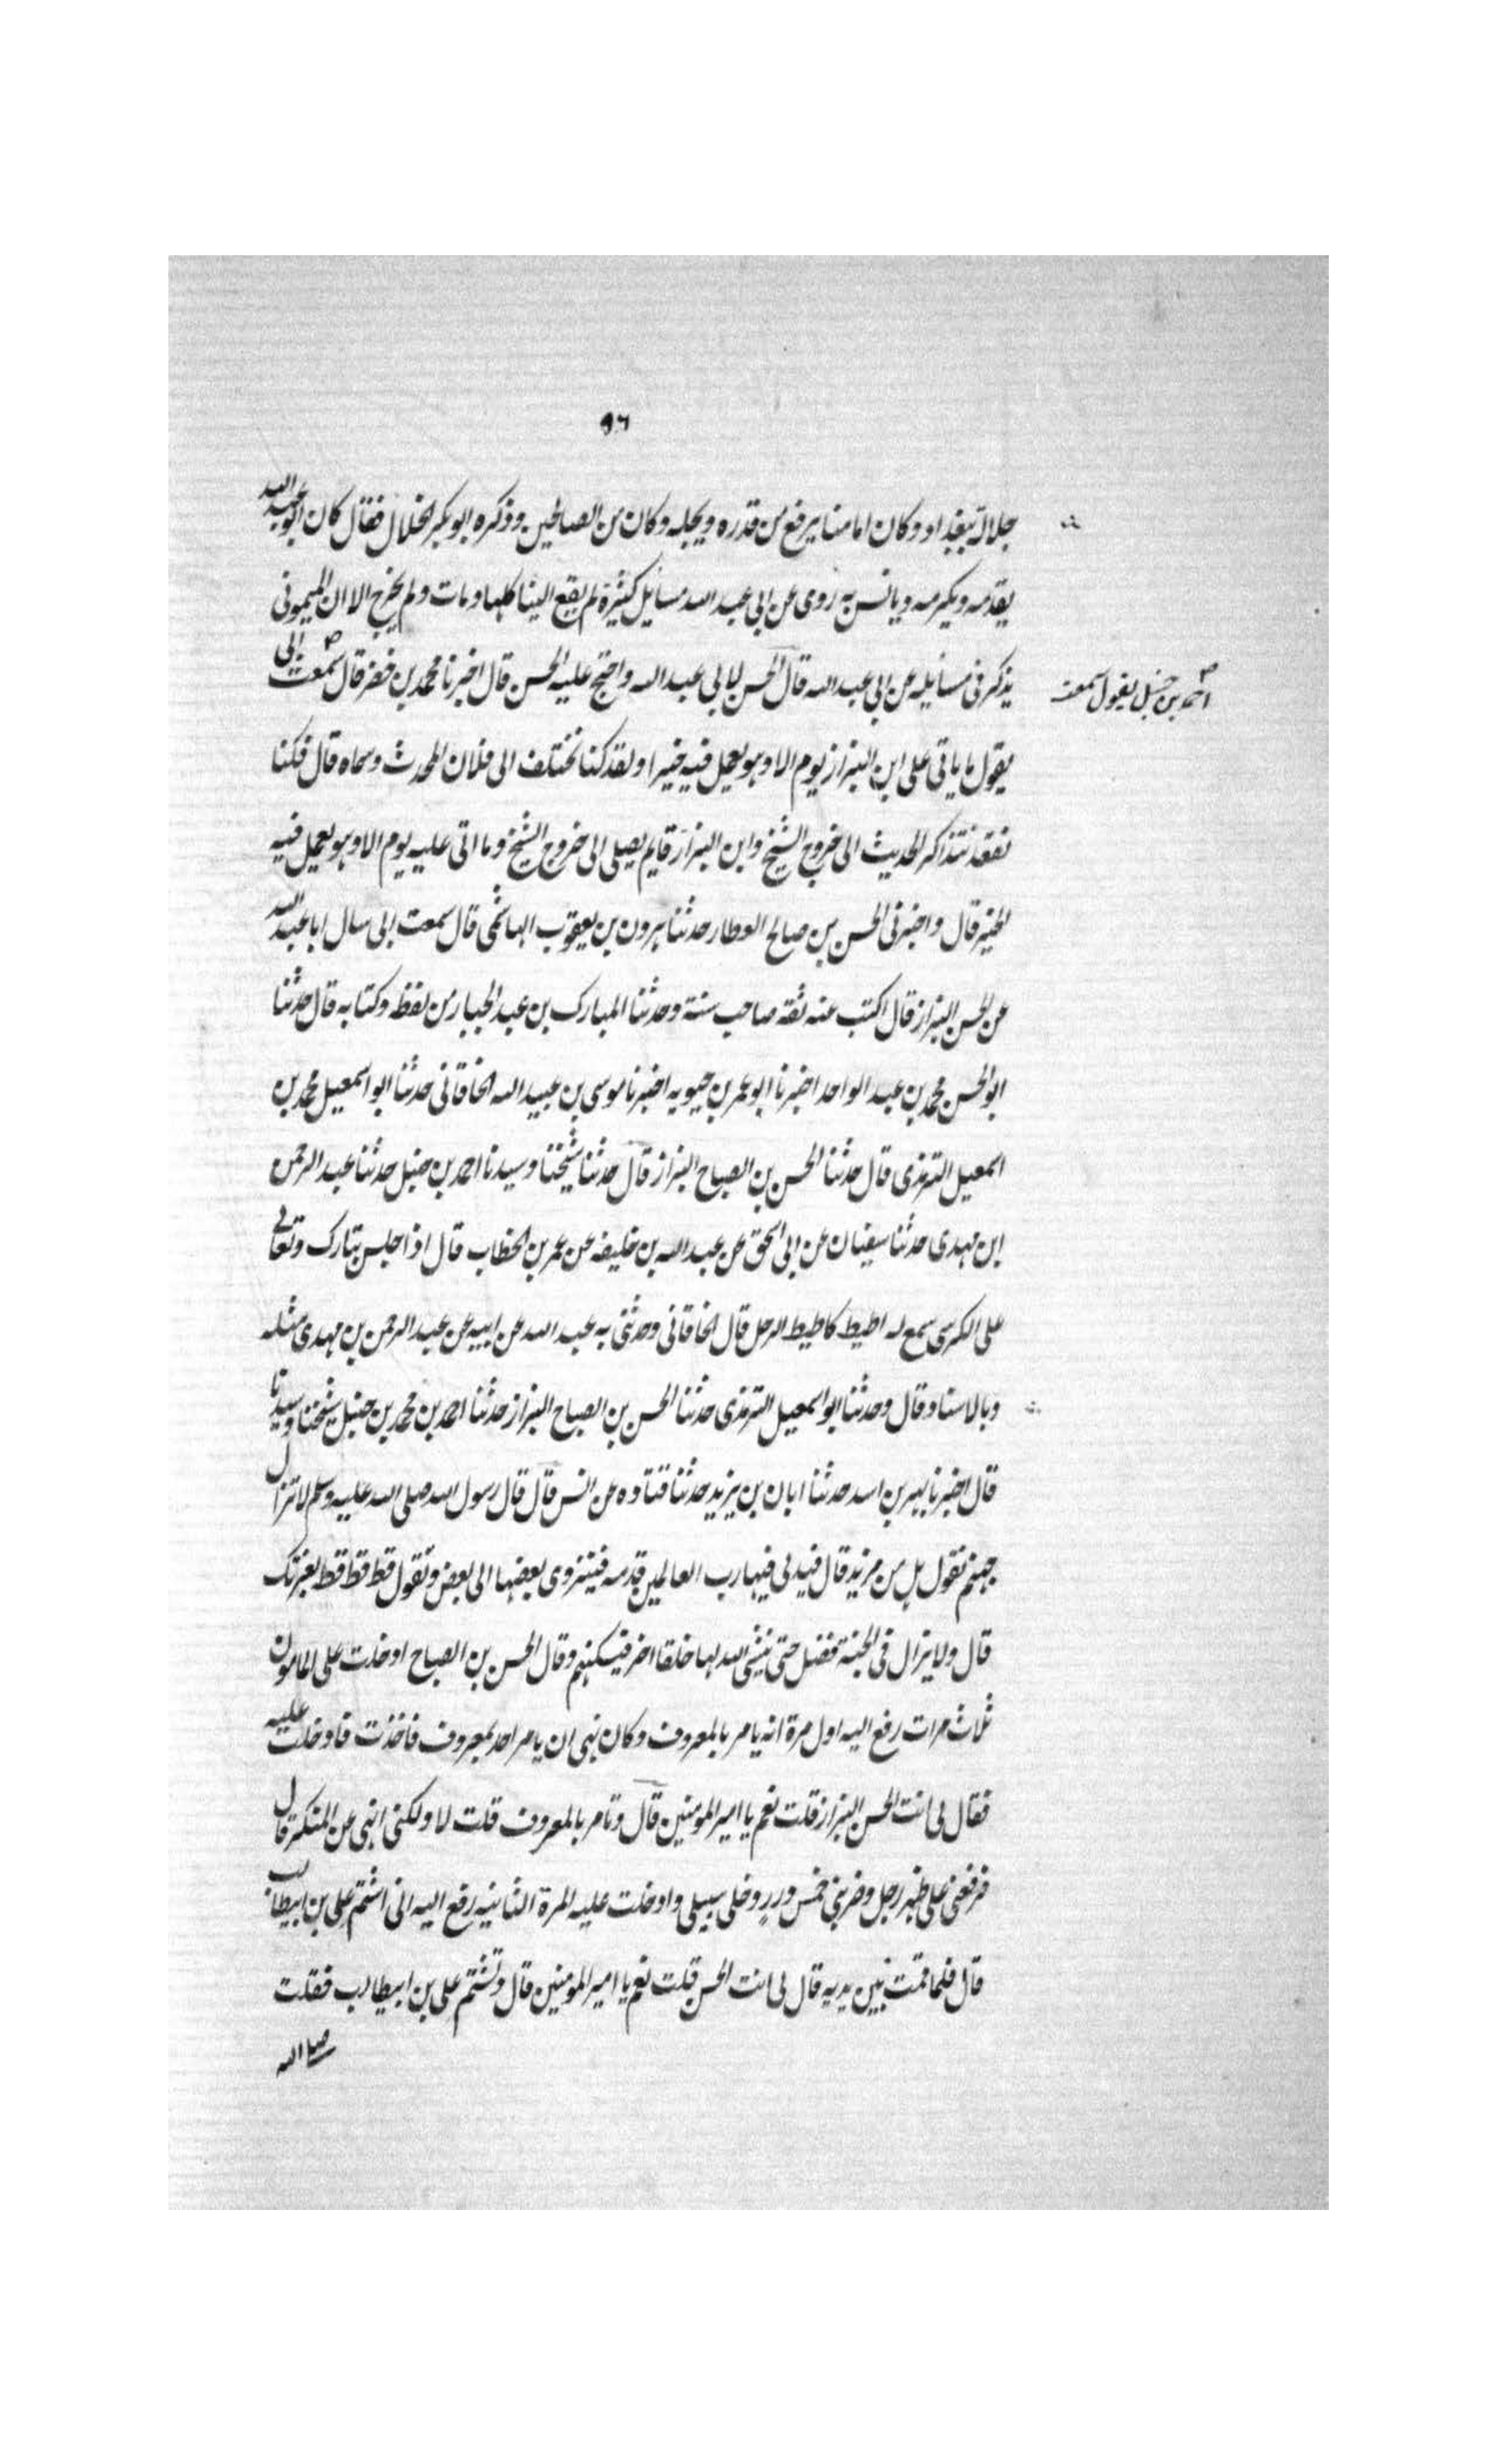 ٩٦
جلالة ببغداد وكان امامنا يرفع من قدره ويجله وكان من الصالحين وذكره ابو بكر الخلال فقال كان ابو عبد الله
يقدمه ويكرمه ويانس به روى عن ابي عبد الله مسايل كثيرة لم يقع الينا كلها ومات ولم يخرج الا ان الميموني
يذكر في مسايله عن ابي عبد الله قال الحسن لابي عبد الله واحتج عليه الحسن قال اخبرنا محمد بن خضر قال سمعت ابي
احمد بن حنبل يقول سمعت
يقول ما ياتي على ابن البزاز يوم الا وهو يعمل فيه خيرا ولقد كنا نختلف الى فلان المحدث وسماه قال فكنا
نقعد نتذاكر الحديث الى خروج الشيخ وابن البزاز قايم يصلي الى خروج الشيخ وما اتى عليه يوم الا وهو يعمل فيه
الخير قال واخبرني الحسن بن صالح العطار حدثنا هرون بن يعقوب الهاشمي قال سمعت ابي سال ابا عبد الله
عن الحسن البزاز قال اكتب عنه ثقة صاحب سنة وحدثنا المبارك بن عبد الجبار من لفظه وكتابه قال حدثنا
ابو الحسن محمد بن عبد الواحد اخبرنا ابو عمر بن حيويه اخبرنا موسى بن عبيد الله الخاقاني حدثنا ابو اسمعيل محمد بن
اسمعيل الترمذي قال حدثنا الحسن بن الصباح البزاز قال حدثنا شيخنا وسيدنا احمد بن حنبل حدثنا عبد الرحمن
ابن مهدي حدثنا سفيان عن ابي اسحق عن عبد الله بن خليفه عن عمر بن الخطاب قال اذا جلس تبارك وتعالى
على الكرسي سمع له اطيط كاطيط الرحل قال الخاقاني وحدثني به عبد الله عن ابيه عن عبد الرحمن بن مهدي مثله
وبالاسناد قال وحدثنا ابو اسمعيل الترمذي حدثنا الحسن بن الصباح البزاز حدثنا احمد بن محمد بن حنبل شيخنا وسيدنا
قال اخبرنا بهز بن اسد حدثنا ابان بن يزيد حدثنا قتاده عن انس قال قال رسول الله صلى الله عليه وسلم لا تزال
جهنم تقول هل من مزيد قال فيدلي فيها رب العالمين قدمه فينزوي بعضها الى بعض وتقول قط قط قط بعزتك
قال ولا يزال في الجنة فضل حتى ينشئ الله لها خلقا اخر فيسكنهم وقال الحسن بن الصباح ادخلت على المامون
ثلاث مرات رفع اليه اول مرة انه يامر بالمعروف وكان نهى ان يامر احد بمعروف فاخذت فادخلت عليه
فقال لي انت الحسن البزاز قلت نعم يا امير المومنين قال وتامر بالمعروف قلت لا ولكني انهى عن المنكر قال
فرفعني على ظهر رجل وضربني خمس درر وخلى سبيلي وادخلت عليه المرة الثانيه رفع اليه اني اشتم علي بن ابيطالب
قال فلما قمت بين يديه قال لي انت الحسن قلت نعم يا امير المومنين قال وتشتم علي بن ابيطالب فقلت
صلى الله